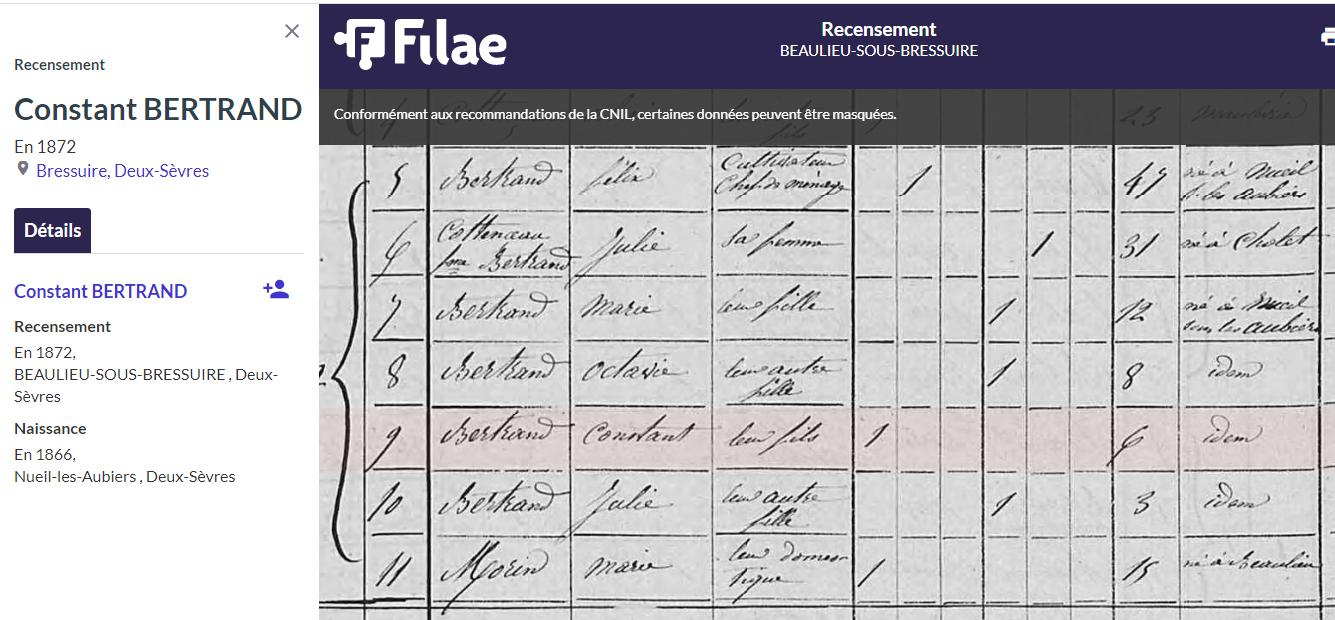 Recensement
Constant BERTRAND
En 1872
Bressuire, Deux-Sèvres
Détails
Constant BERTRAND
Recensement
En 1872,
BEAULIEU-SOUS-BRESSUIRE , Deux-
Sèvres
Naissance
En 1866,
Nueil-les-Aubiers , Deux-Sèvres
Filae
Recensement
BEAULIEU-SOUS-BRESSUIRE
Conformément aux recommandations de la CNIL, certaines données peuvent être masquées.
23
5 Bertrand félix Cultivateur
Chef de ménage 1 47 né à Nueil
s. les aubiers
6 Cottenceau
fme Bertrand Julie sa femme 1 31 né à Cholet
7 Bertrand Marie leur fille 1 12 né à Nueil
sous les aubiers
8 Bertrand octavie leur autre
fille 1 8 idem
9 Bertrand Constant leur fils 1 6 idem
10 Bertrand Julie leur autre
fille 1 3 idem
11 Morin marie leur domes-
tique 1 15 né à Beaulieu